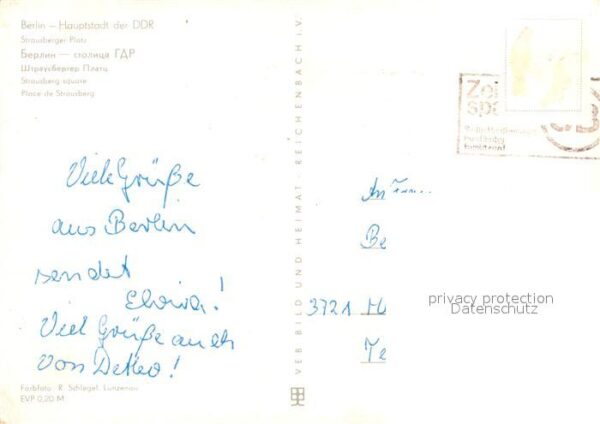 Berlin – Hauptstadt der DDR
Strausberger Platz
Берлин — столица ГДР
Штраусбергер Платц
Strausberg square
Place de Strausberg
Viele Grüße
aus Berlin
sendet
Viel Grüße auch
von
Farbfoto: R. Schlegel, Lunzenau
EVP 0,20 M
VEB BILD UND HEIMAT · REICHENBACH i. V.
An
Be
3721
privacy protection
Datenschutz